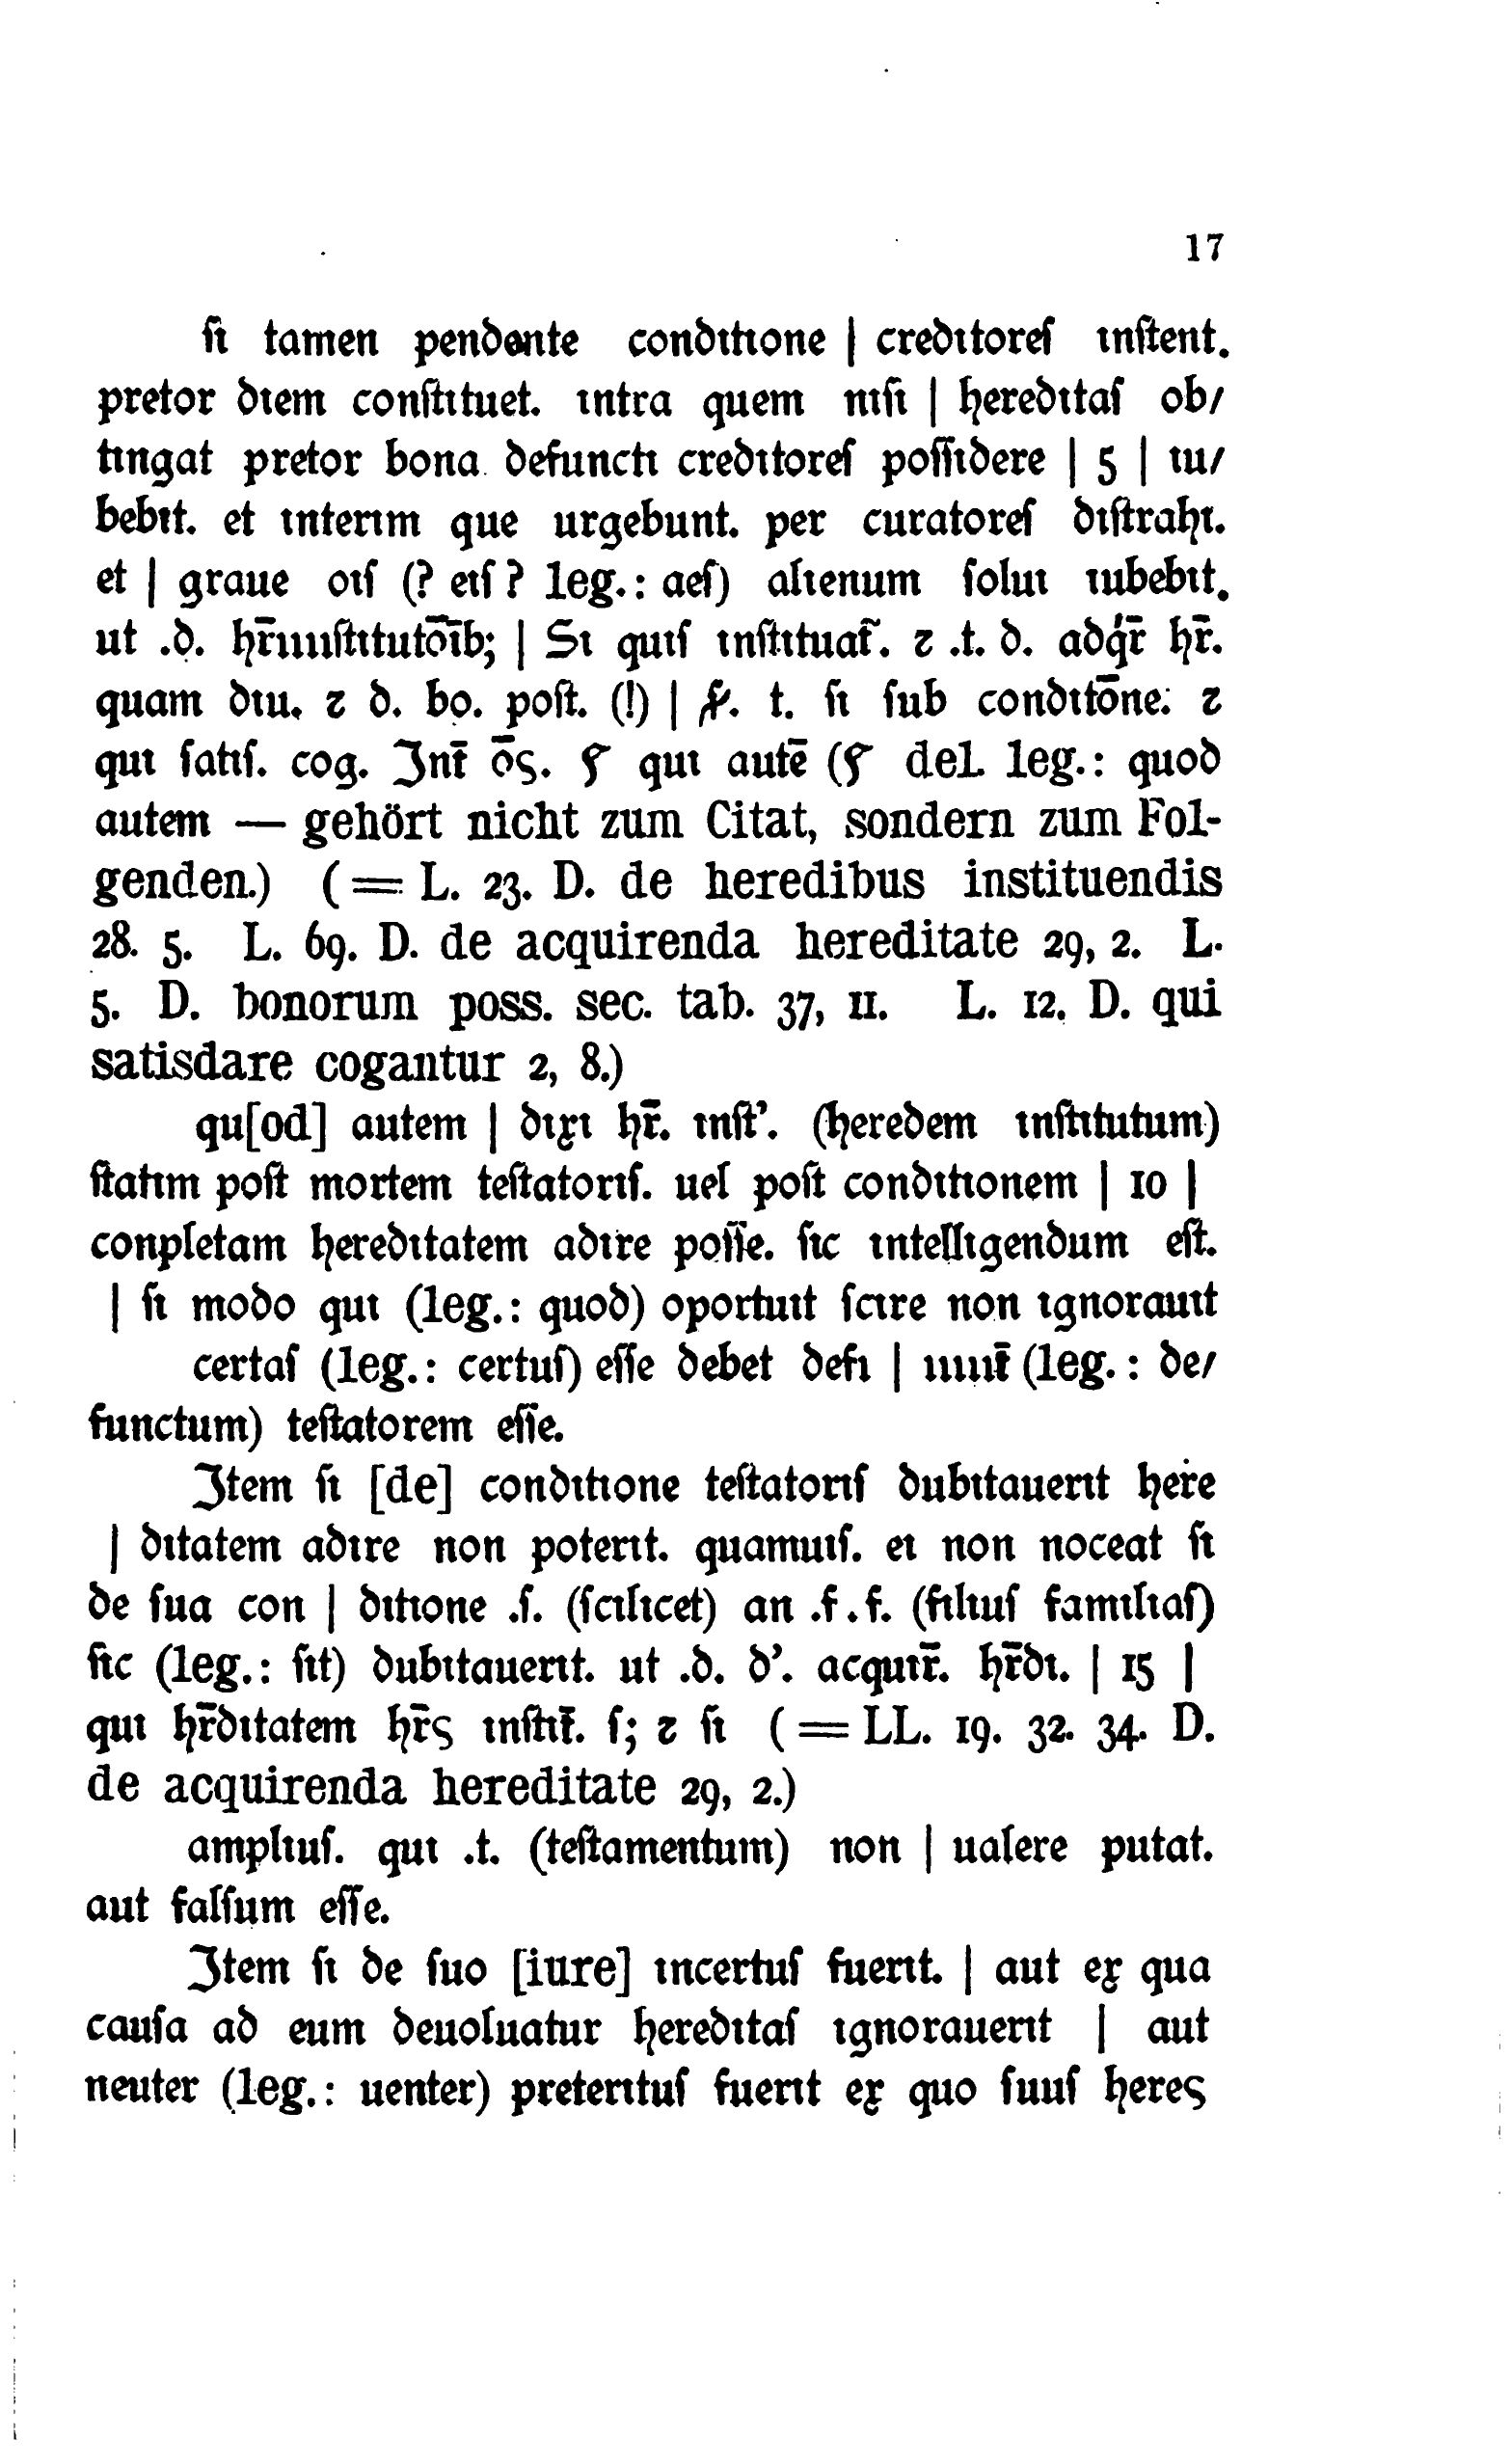 17
ſı tamen pendente condıtıone | credıtoreſ ınſtent.
pretor dıem conſtıtuet. ıntra quem nıſı | heredıtaſ ob/
tıngat pretor bona defunctı credıtoreſ poſſıdere | 5 | ıu/
bebıt. et ınterım que urgebunt. per curatoreſ dıſtrahı.
et | graue oıſ (? eıſ? leg.: aeſ) alıenum ſoluı ıubebıt.
ut .d. hr̄ıınſtıtutōıb; | Sı quıſ ınſtıtuat̄. ꝛ .t. d. adq́r̄ hr̄.
quam dıu. ꝛ d. bo. poſt. (!) | . t. ſı ſub condıtōne. ꝛ
quı ſatıſ. cog. Int̄ ōs. quı autē ( del. leg.: quod
autem — gehört nicht zum Citat, sondern zum Fol-
genden.) (= L. 23. D. de heredibus instituendis
28. 5. L. 69. D. de acquirenda hereditate 29, 2. L.
5. D. bonorum poss. sec. tab. 37, 11. L. 12. D. qui
satisdare cogantur 2, 8.)
qu[od] autem | dıxı hr̄. ınſt’. (heredem ınſtıtutum)
ſtatım poſt mortem teſtatorıſ. uel poſt condıtıonem | 10 |
conpletam heredıtatem adıre poſſe. ſıc ıntellıgendum eſt.
| ſı modo quı (leg.: quod) oportuıt ſcıre non ıgnorauıt
certaſ (leg.: certuſ) eſſe debet defı | ııııt̄ (leg.: de/
functum) teſtatorem eſſe.
Item ſı [de] condıtıone teſtatorıſ dubıtauerıt here
| dıtatem adıre non poterıt. quamuıſ. eı non noceat ſı
de ſua con | dıtıone .ſ. (ſcılıcet) an .f.f. (fılıuſ famılıaſ)
ſıc (leg.: ſıt) dubıtauerıt. ut .d. d’. acquır̄. hr̄dı. | 15 |
quı hr̄dıtatem hr̄s ınſtıt̄. ſ; ꝛ ſı (= LL. 19. 32. 34. D.
de acquirenda hereditate 29, 2.)
amplıuſ. quı .t. (teſtamentum) non | ualere putat.
aut falſum eſſe.
Item ſı de ſuo [iure] ıncertuſ fuerıt. | aut ex qua
cauſa ad eum deuoluatur heredıtaſ ıgnorauerıt | aut
neuter (leg.: uenter) preterıtuſ fuerıt ex quo ſuuſ heres